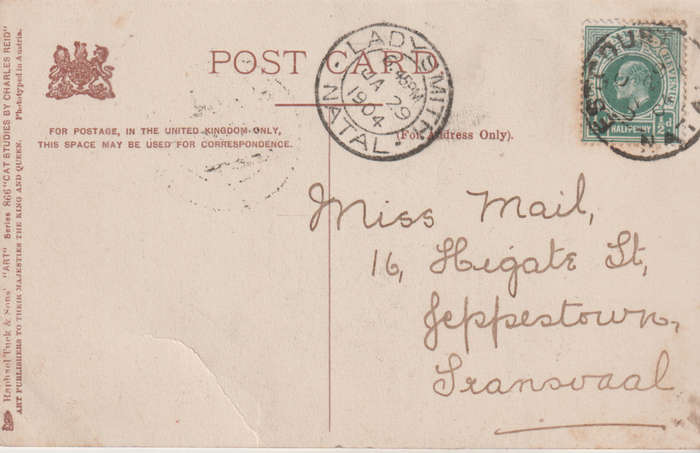 POST CARD
FOR POSTAGE, IN THE UNITED KINGDOM ONLY,
THIS SPACE MAY BE USED FOR CORRESPONDENCE.
(For Address Only).
LADYSMITH
6.45PM
JA 29
1904
NATAL
HALF-PENNY
Miss Mail,
16, Higate St,
Jeppestown,
Transvaal
Raphael Tuck & Sons' "ART" Series 866 "CAT STUDIES BY CHARLES REID"
ART PUBLISHERS TO THEIR MAJESTIES THE KING AND QUEEN. Phototyped in Austria.